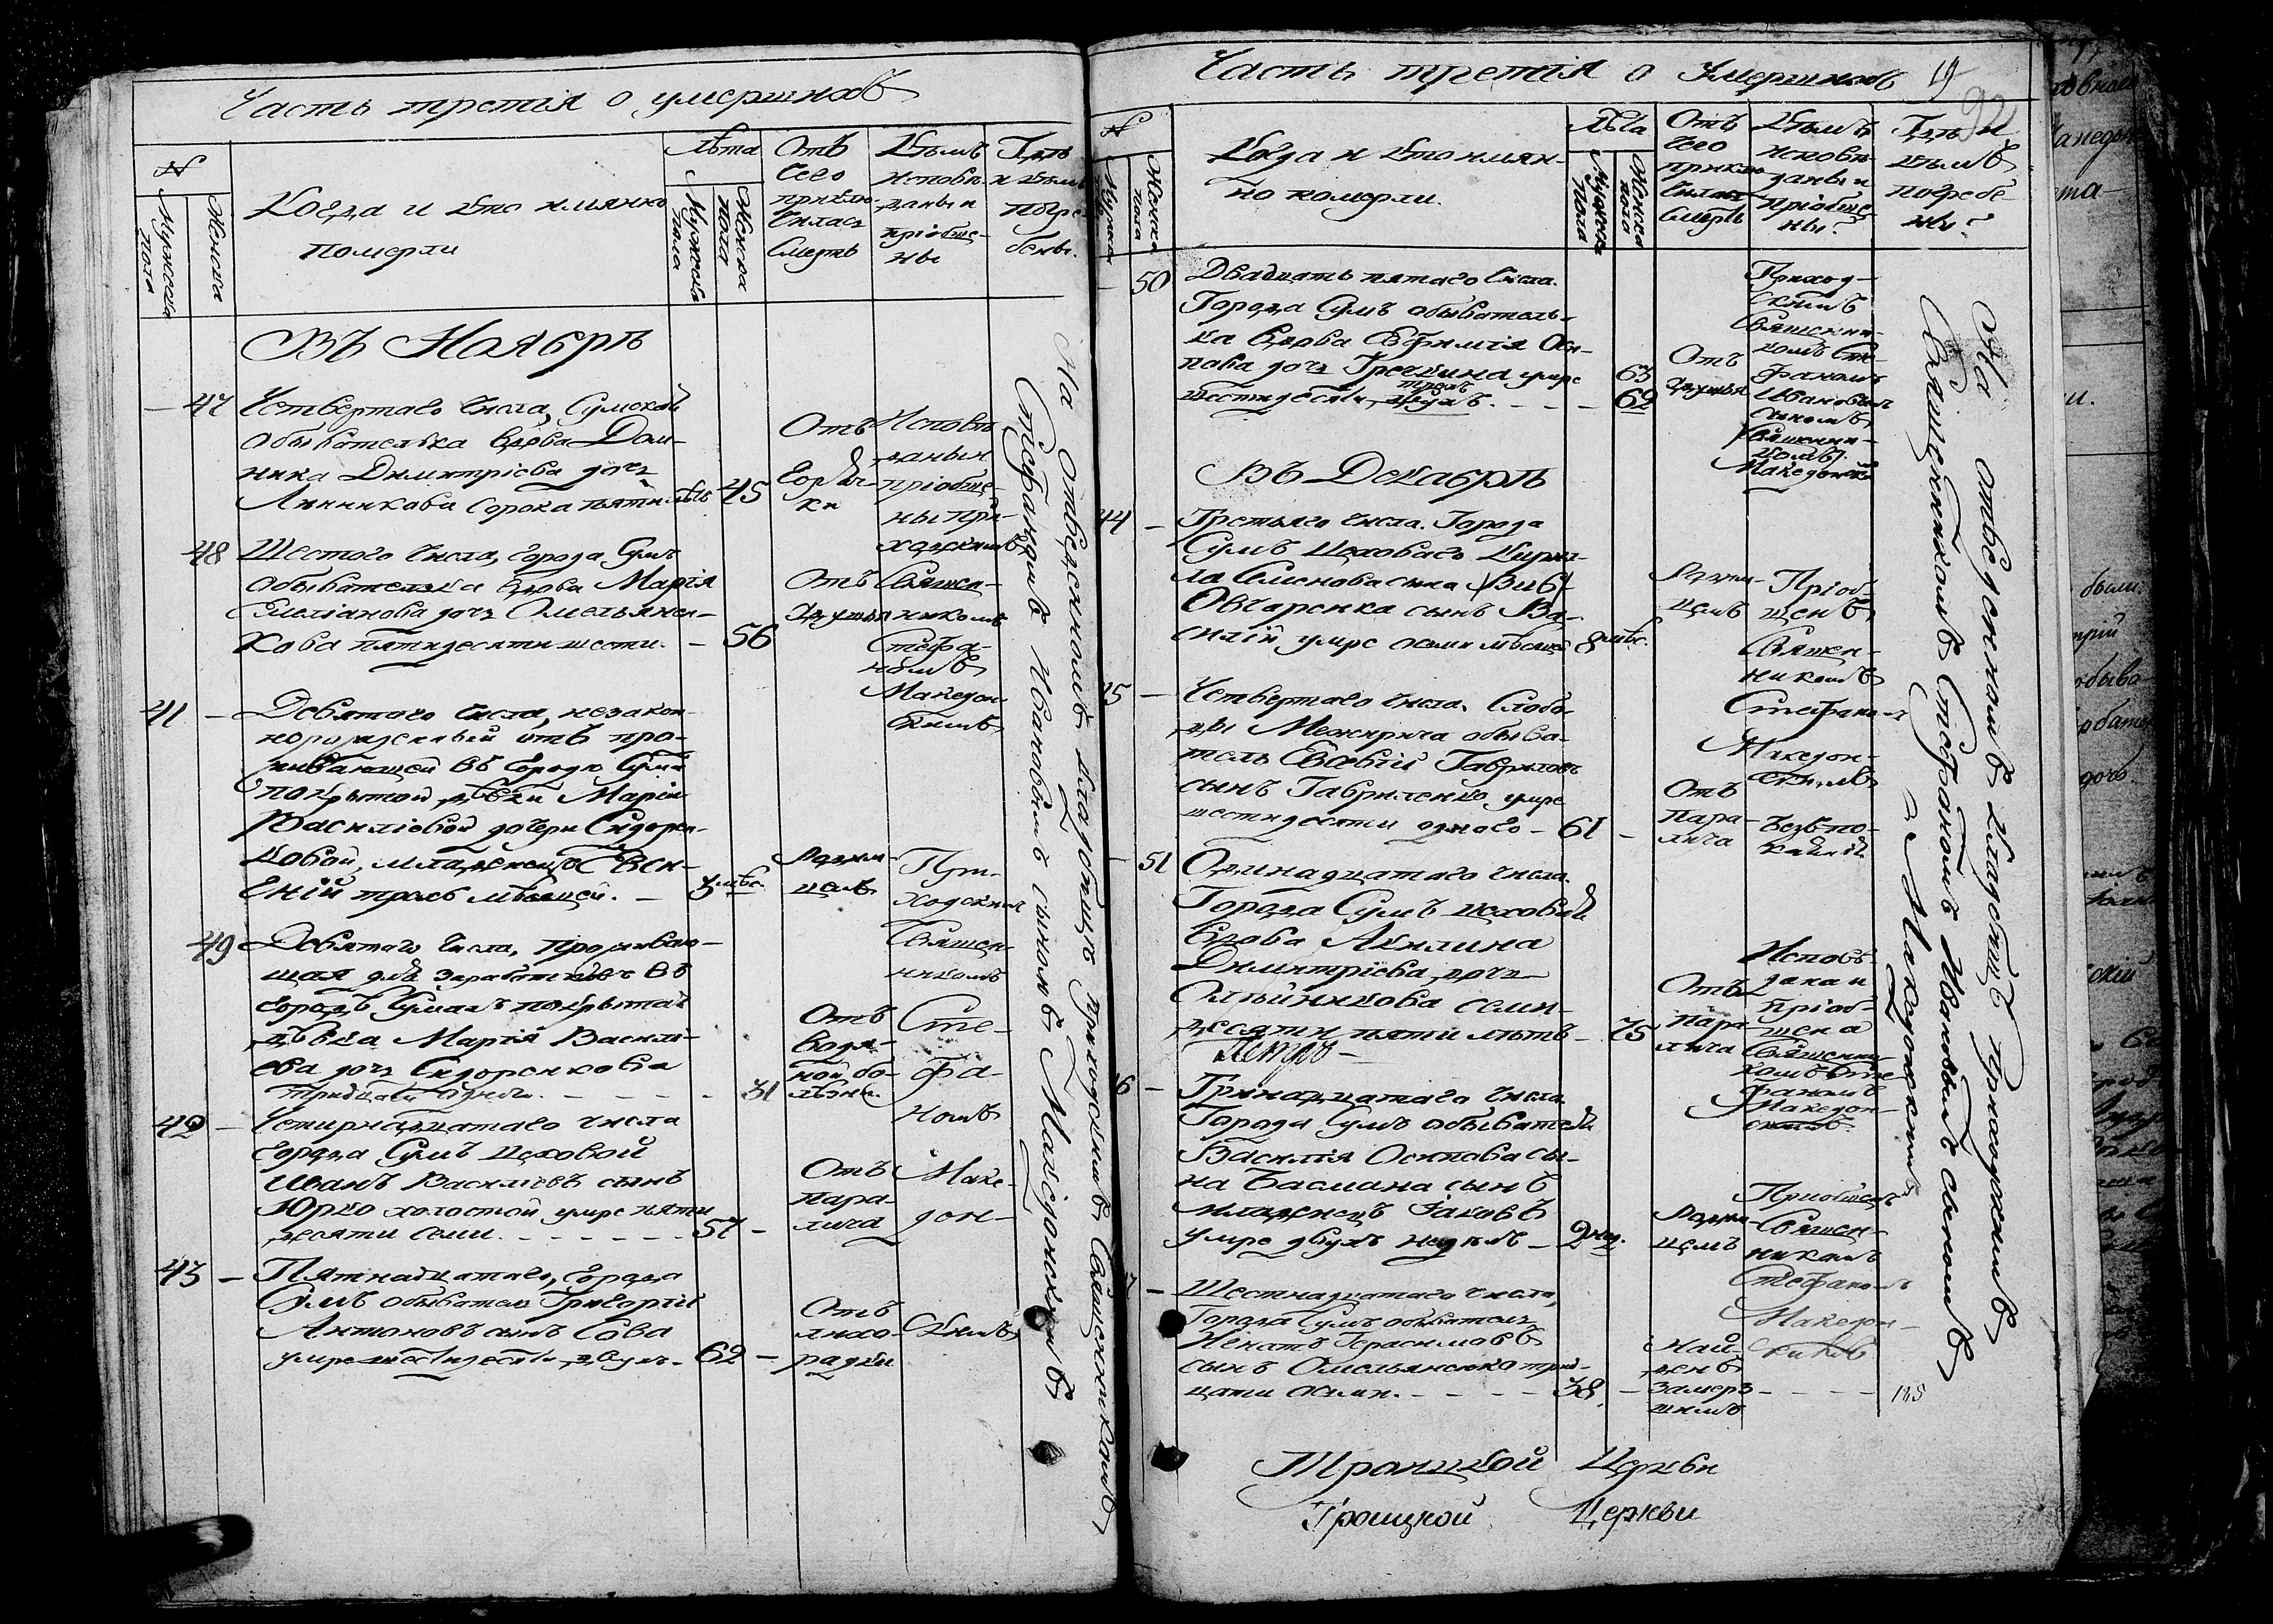 Часть третія о умершихъ
№
Мужеска пола
Женска
Когда и кто имянно
померли
Лѣта
Мужеска пола
Женска пола
Отъ
чего
приклю-
чилась
смерть
Кѣмъ
исповѣ-
даны и
пріобще-
ны
Гдѣ
и кѣмъ
погре-
бены.
Въ Ноябрѣ
— 47 Четвертаго числа, Сумской
обывателька вдова Дом-
ника Димитріева дочь
Линникова сорока пяти лѣтъ 45
Отъ
горяч-
ки
Исповѣ-
даны и
пріобще-
ны При-
ходскимъ
Священ-
никомъ
Стефа-
номъ
Македон-
скимъ
48 Шестого числа, города Сумъ
обывателька вдова Марія
Емеліанова дочь Омельянен-
кова пятидесяти шести. — 56
Отъ
удушья
41 — Девятаго числа, незакон-
норожденный отъ про-
живающей въ городѣ Сумы
покрытой дѣвки Маріи
Василіевой дочери Сидорен-
ковой, младенецъ Евге-
ній трехъ мѣсяцей. — 3 мѣс.
Родим-
цемъ
При-
ходскимъ
Священ-
никомъ
Сте-
фа-
номъ
Маке-
дон-
скимъ
49 Девятаго числа, проживаю-
щая для заработковъ въ
городѣ Сумахъ покрытая
дѣвка Марія Василі-
ева дочь Сидоренкова
тридцати одного. — — — 31
Отъ
водя-
ной бо-
лѣзни.
42 — Четырнадцатаго числа
города Сумъ цеховой
Иванъ Василіевъ сынъ
Юрко холостой умре пяти
десяти семи. — — — 57 —
Отъ
пара-
лича
43 — Пятнадцатаго, города
Сумъ обыватель Григорій
Антоновъ сынъ Сова
умре шестидесяти двухъ. 62 —
Отъ
лихо-
радки
На отведенномъ кладбищѣ приходскимъ Священникомъ
Стефаномъ Ивановымъ сыномъ Македонскимъ
Часть третія о Умершихъ 19
92
№
Мужска
Женска пола
Когда и кто имян-
но померли.
Лѣта
Мужска пола
Женска пола
Отъ
чего
приклю-
чилась
смерть
Кѣмъ
исповѣ-
даны и
пріобще-
ны?
Гдѣ и
кѣмъ
погребе-
ны?
— 50 Двадцать пятаго числа.
Города Сумъ обыватель-
ка вдова Евфимія Оси-
пова дочь Гречкина умре 63
трехъ
шестидесяти двухъ. — — — 62
Отъ
удушья
Приход-
скимъ
Священни-
комъ Сте-
фаномъ
Ивановымъ
сыномъ
Священни-
комъ
Македонски
Въ Декабрѣ
44 — Третьяго числа. Города
Сумъ цеховаго Кирил-
ла Семенова сына
Овчаренка сынъ Ва-
силій умре осми мѣсяцей 8 мѣс.
Родим-
цемъ
Пріоб-
щенъ
Священ-
никомъ
Стефаномъ
Македон-
скимъ
45 — Четвертаго числа. Слобо-
ды Межирича обыва-
тель Евсевій Гавриловъ
сынъ Гавриленко, умре
шестидесяти одного — 61 —
Отъ
пара-
лича
Безъ по-
каянія
— 51 Одинадцатаго числа.
Города Сумъ цеховой
вдова Акилина
Димитріева дочь
Олейникова семи-
десяти пяти лѣтъ — 75
Отъ
пара-
лича
Исповѣ-
дана и
пріоб-
щена
Священни-
комъ Сте-
фаномъ
Македон-
скимъ
46 — Тринадцатаго числа.
Города Сумъ обывателя
Василія Осипова сы-
на Басмана сынъ
младенецъ Іаковъ
умре двухъ недѣль — 2 нед.
Родим-
цемъ
Пріобщенъ
Священ-
никомъ
Стефаномъ
Македон-
скимъ
— Шестнадцатаго числа,
Города Сумъ обыватель
Игнатъ Герасимовъ
сынъ Омельяненко трид-
цати осми. — — — — 38. —
Най-
денъ
замерз-
шимъ
— — — — 185
На отведенномъ кладбищѣ приходскимъ
Священникомъ Стефаномъ Ивановымъ сыномъ
Македонскимъ
Троицкой Церкви
Троицкой Церкви